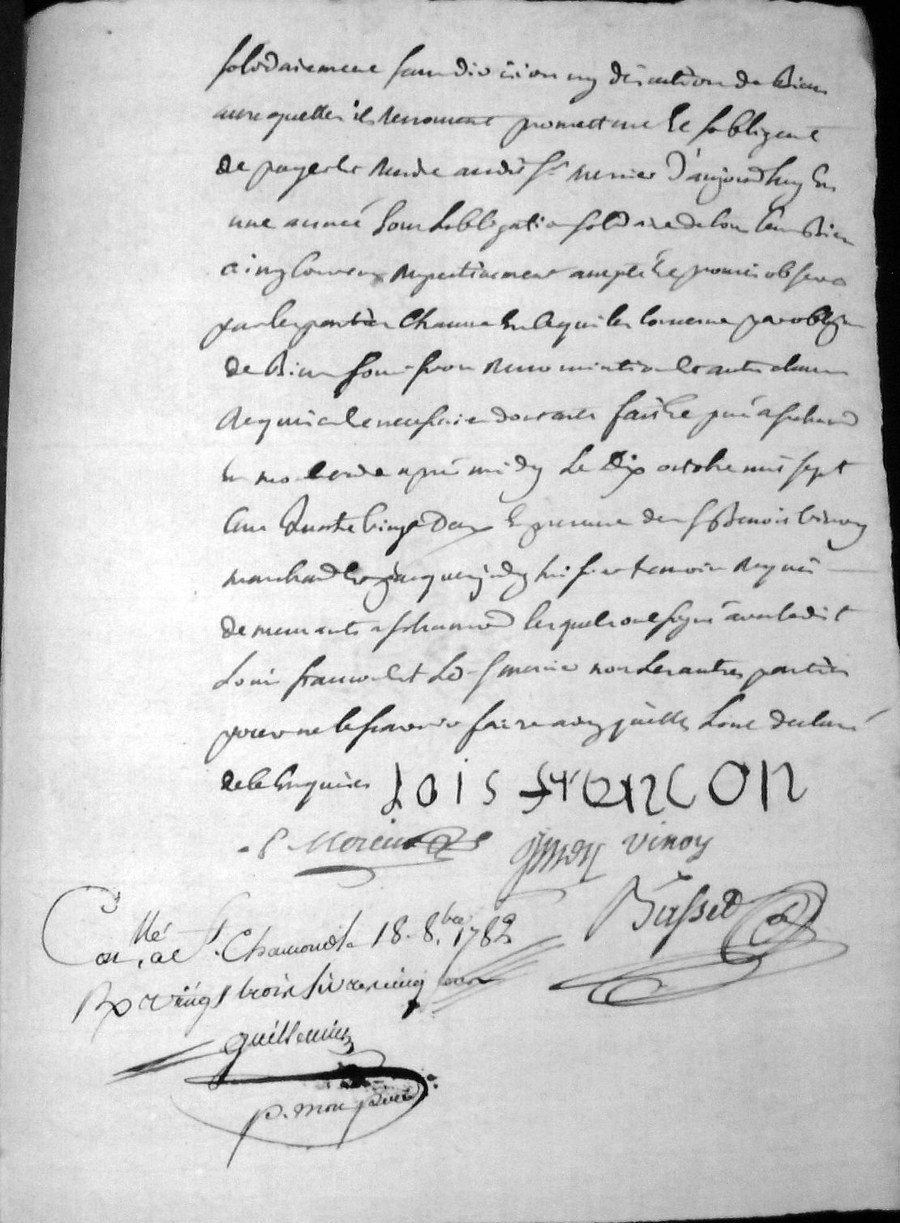 solidairement sans division ny discution de Biens
auxquelles ils renoncent promettent Et sobligent
de payer et rendre audit Sr mercier d'aujourdhuy En
une année sous lobligation solidaire de tous leurs Biens
ainsy convenu respectivement accepté Et promis observer
par les parties chacune En ce qui les concerne par obligation
de Biens soumissions renonciations et autres clauses
requises et necessaires dont acte fait Et passé a st chamond
En no. etude après midy Le Dix octobre mil sept
Cent Quatre Vingt Deux En presence de Sr Benoit vinoy
marchand Et
demeurants a st chamond lesquels ont signé avec ledit
Louis francon Et led. Sr mercier non les autres parties
pour ne le scavoir faire ainsy qu'elles l'ont declaré
de ce Enquises Lois frencon
Mercier vinoy
Basset
Con.llé a St. Chamond le 18. 8.bre 1782
Rx vingt trois livres cinq sous
guillemin
p. mon pere